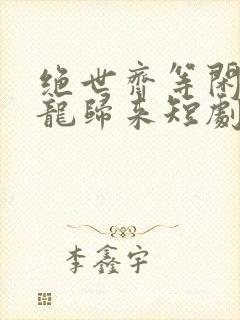 絕世齊等閑
龍歸來短劇
李鑫宇